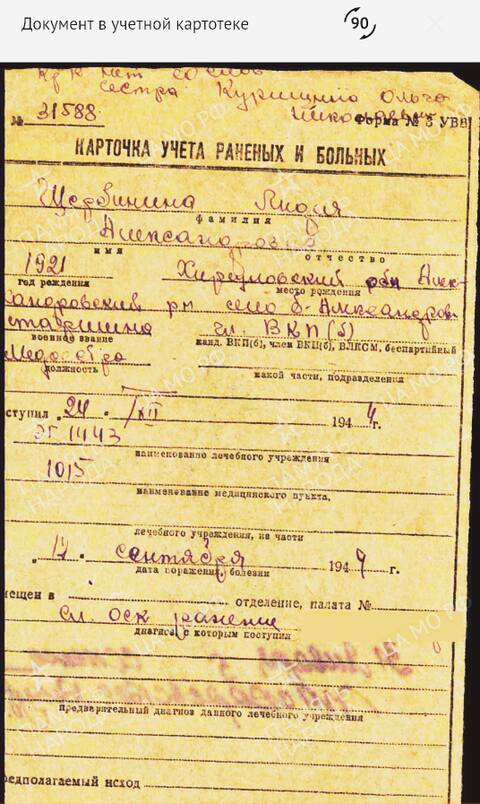 Документ в учетной картотеке
90
сестра Курицына Ольга
№ 31588
Форма № 3 УВВ
КАРТОЧКА УЧЕТА РАНЕНЫХ И БОЛЬНЫХ
Щербинина Лидия
фамилия
Александровна
имя отчество
1921
год рождения место рождения
село Б-Александров
старшина чл. ВКП(б)
военное звание канд. ВКП(б), член ВКП(б), ВЛКСМ, беспартийный
Медсестра
должность какой части, подразделения
ступил „24" XII 1944г.
ЭГ 1443
наименование лечебного учреждения
1015
наименование медицинского пункта,
лечебного учреждения, из части
сентября 194 г.
дата поражения, болезни
мещен в отделение, палата №
сл. оск ранение
диагноз с которым поступил
предварительный диагноз данного лечебного учреждения
редполагаемый исход